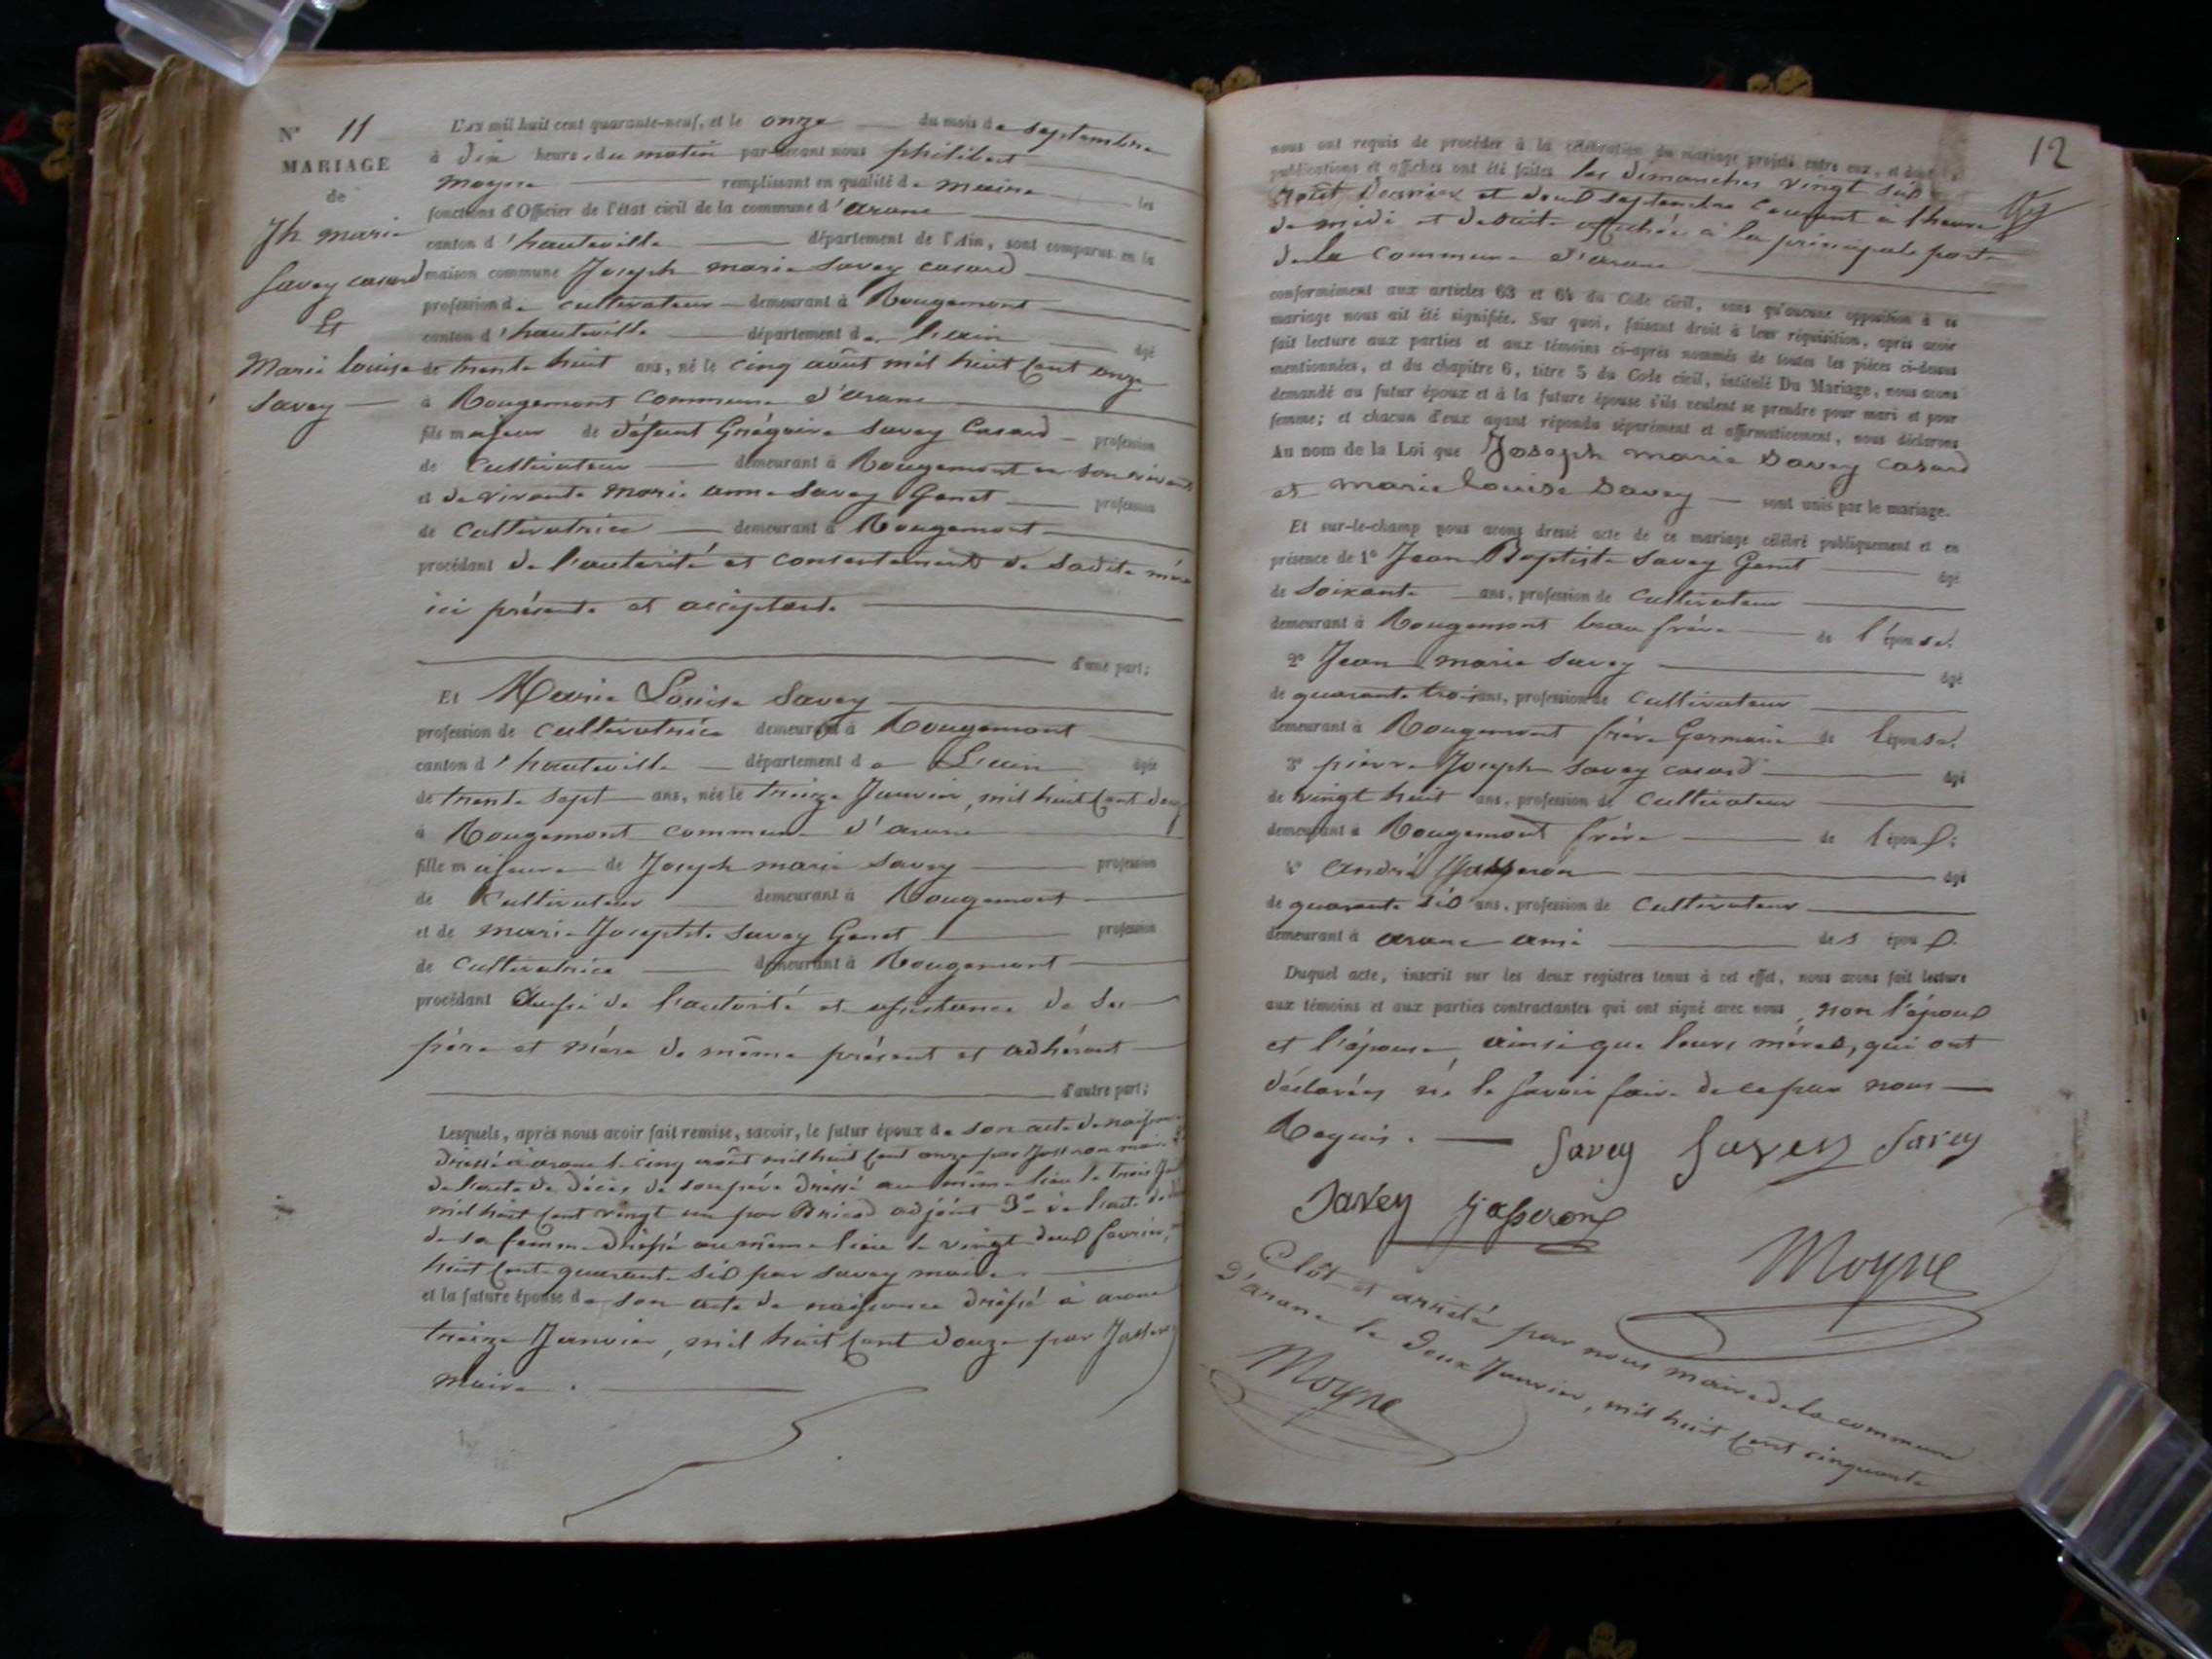 N° 11
MARIAGE
de
Jh marie
Savey casard
Et
Marie louise
Savey
L'an mil huit cent quarante-neuf, et le onze du mois de septembre
à dix heures du matin par-devant nous philibert
Moyne remplissant en qualité de maire les
fonctions d'Officier de l'état civil de la commune d'arane
canton d'hauteville département de l'Ain, sont comparus en la
maison commune Joseph marie Savey casard
profession de cultivateur demeurant à Rougemont
canton d'hauteville département de l'ain âgé
de trente huit ans, né le cinq août mil huit cent onze
à Rougemont Commune d'arane
fils majeur de défunt Grégoire Savey Casard profession
de Cultivateur demeurant à Rougemont en son vivant
et de vivante Marie anne Savey Genet profession
de Cultivatrice demeurant à Rougemont
procédant de l'autorité et consentement de sadite mère
ici présente et acceptante
d'une part;
Et Marie Louise Savey
profession de cultivatrice demeurant à Rougemont
canton d'hauteville département de L'ain âgée
de trente sept ans, née le treize Janvier, mil huit cent douze
à Rougemont commune d'arane
fille majeure de Joseph marie Savey profession
de Cultivateur demeurant à Rougemont
et de marie Josephte Savey Genet profession
de Cultivatrice demeurant à Rougemont
procédant Aussi de l'autorité et assistance de ses
père et mère de même présent et adhérent
d'autre part;
Lesquels, après nous avoir fait remise, savoir, le futur époux de son acte de naissance
dressé à arane le cinq août mil huit cent onze par maire
de l'acte de décès de son père dressé au même lieu le trois
mil huit cent vingt un par Bricod adjoint 3° de l'acte de décès
de sa femme dressé au même lieu le vingt deux février,
huit cent quarante six par Savey maire
et la future épouse de son acte de naissance dressé à arane
treize Janvier, mil huit cent douze par
maire.
12
nous ont requis de procéder à la célébration du mariage projeté entre eux, et dont
publications et affiches ont été faites les dimanches vingt six
Août dernier et deux septembre courant à l'heure
de midi et de suite affichée à la principale porte
de la Commune d'arane
conformément aux articles 63 et 64 du Code civil, sans qu'aucune opposition à ce
mariage nous ait été signifiée. Sur quoi, faisant droit à leur réquisition, après avoir
fait lecture aux parties et aux témoins ci-après nommés de toutes les pièces ci-dessus
mentionnées, et du chapitre 6, titre 5 du Code civil, intitulé Du Mariage, nous avons
demandé au futur époux et à la future épouse s'ils veulent se prendre pour mari et pour
femme; et chacun d'eux ayant répondu séparément et affirmativement, nous déclarons
Au nom de la Loi que Joseph marie Savey casard
et marie louise Savey sont unis par le mariage.
Et sur-le-champ nous avons dressé acte de ce mariage célébré publiquement et en
présence de 1° Jean Baptiste Savey Genet âgé
de Soixante ans, profession de Cultivateur
demeurant à Rougemont beau frère de l'épouse.
2° Jean marie Savey âgé
de quarante trois ans, profession de Cultivateur
demeurant à Rougemont frère Germain de l'épouse.
3° pierre Joseph Savey casard âgé
de vingt huit ans, profession de Cultivateur
demeurant à Rougemont frère de l'époux.
4° André Gasperon âgé
de quarante six ans, profession de Cultivateur
demeurant à arane ami des époux.
Duquel acte, inscrit sur les deux registres tenus à cet effet, nous avons fait lecture
aux témoins et aux parties contractantes qui ont signé avec nous, non l'époux
et l'épouse, ainsi que leurs mères, qui ont
déclarées ne le savoir faire de ce par nous
Requis. Savey Savey Savey
Savey Gasperon
Moyne
Clôs et arrêté par nous maire de la commune
d'arane le deux Janvier, mil huit cent cinquante
Moyne